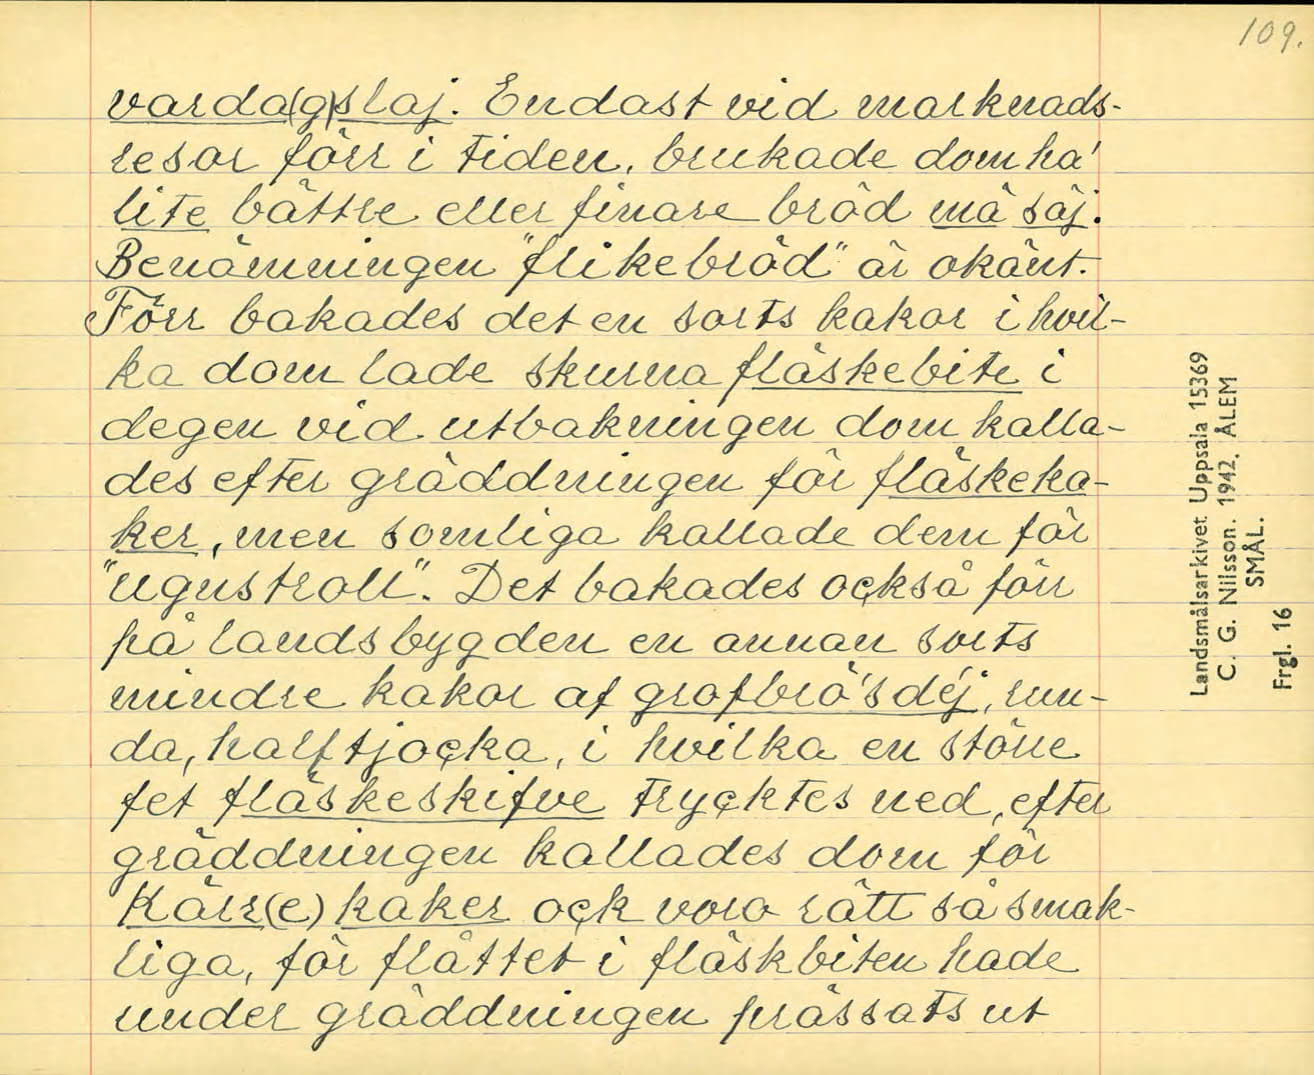 109.
varda(g)slaj. Endast vid marknads-
resor förr i tiden, brukade dom ha'
lite bättre eller finare bröd mä säj.
Benämningen "flikebröd" är okänt.
Förr bakades det en sorts kakor i hvil-
ka dom lade skurna fläskebite i
degen vid utbakningen dom kalla-
des efter gräddningen för fläskeka-
ker, men somliga kallade dem för
"ugnstroll". Det bakades också förr
på landsbygden en annan sorts
mindre kakor af grofbrö'sdéj, run-
da, halftjocka, i hvilka en större
fet fläskeskifve trycktes ned, efter
gräddningen kallades dom för
Kärr(e)kaker ock voro rätt så smak-
liga, för flättet i fläskbiten hade
under gräddningen prässats ut
Landsmålsarkivet Uppsala 15369
C. G. Nilsson. 1942. ÅLEM
SMÅL.
Frgl. 16